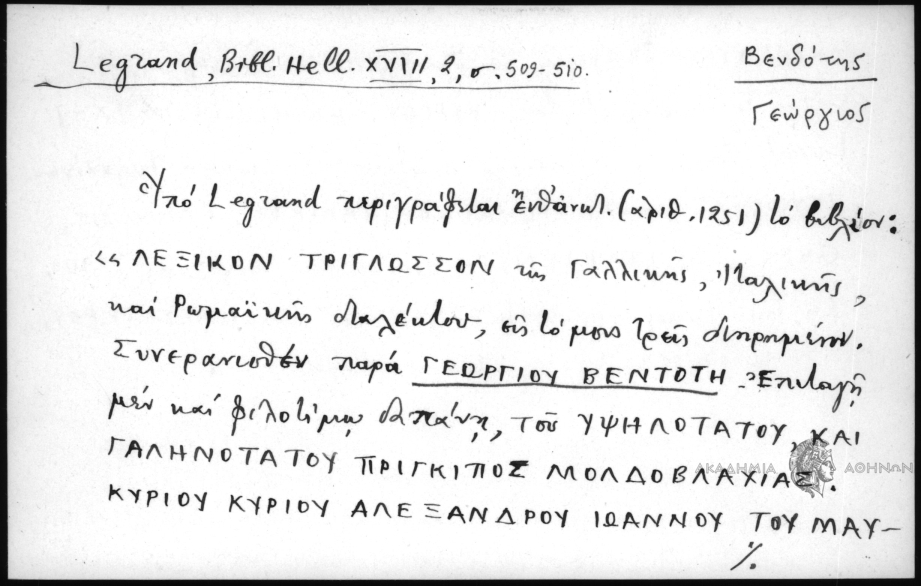 Legrand, Bibl. Hell. XVIII, 2, σ. 509-510.
Βενδότης
Γεώργιος
Ὑπό Legrand περιγράφεται ἐνθάνωτ. (ἀριθ. 1251) τό βιβλίον:
«ΛΕΞΙΚΟΝ ΤΡΙΓΛΩΣΣΟΝ τῆς Γαλλικῆς, Ἰταλικῆς,
καί Ρωμαϊκῆς διαλέκτου, εἰς τόμους τρεῖς διηρημένον.
Συνερανισθέν παρά ΓΕΩΡΓΙΟΥ ΒΕΝΤΟΤΗ Ἐπιταγῇ
μέν καί φιλοτίμῳ δαπάνῃ, τοῦ ΥΨΗΛΟΤΑΤΟΥ, ΚΑΙ
ΓΑΛΗΝΟΤΑΤΟΥ ΠΡΙΓΚΙΠΟΣ ΜΟΛΔΟΒΛΑΧΙΑΣ.
ΑΚΑΔΗΜΙΑ ΑΘΗΝΩΝ
ΚΥΡΙΟΥ ΚΥΡΙΟΥ ΑΛΕΞΑΝΔΡΟΥ ΙΩΑΝΝΟΥ ΤΟΥ ΜΑΥ-
./.